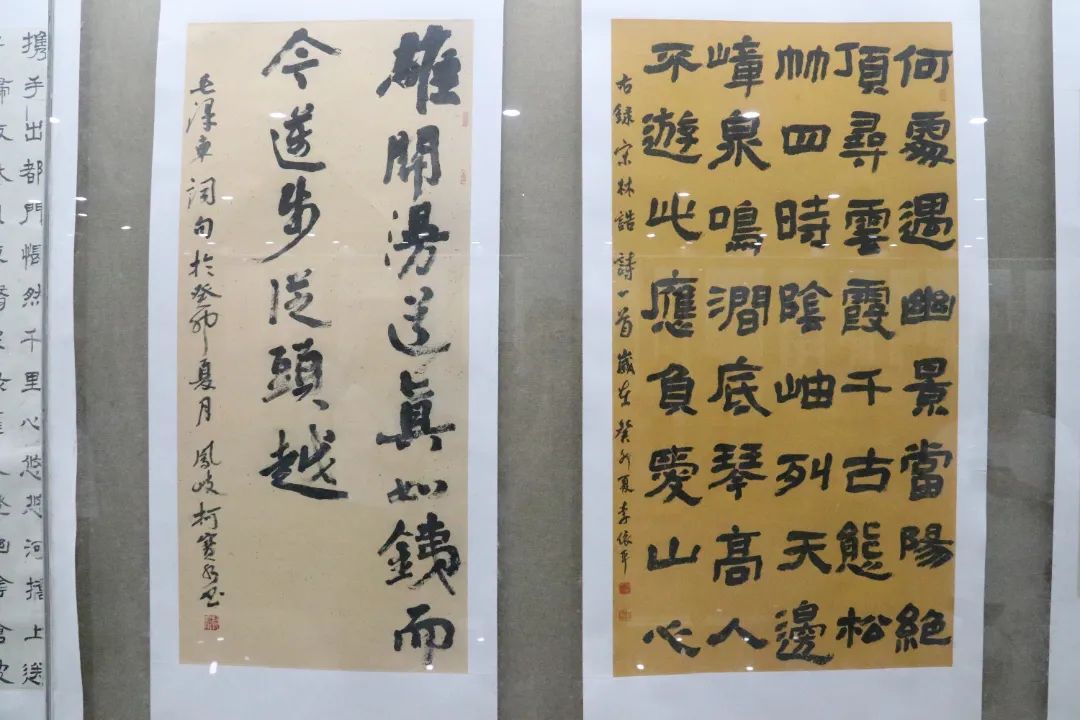 何處遇幽景當陽絕
頂尋雲霞千古態松
竹四時陰岫列天邊
嶂泉鳴澗底琴高人
不遊此應負愛山心
右録宋林誥詩一首歲在癸卯夏李依平
雄關漫道真如鐵而
今邁步從頭越
毛澤東詞句於癸卯夏月鳳岐柯寶書
攜手出都門悵然千里心悠悠河上送